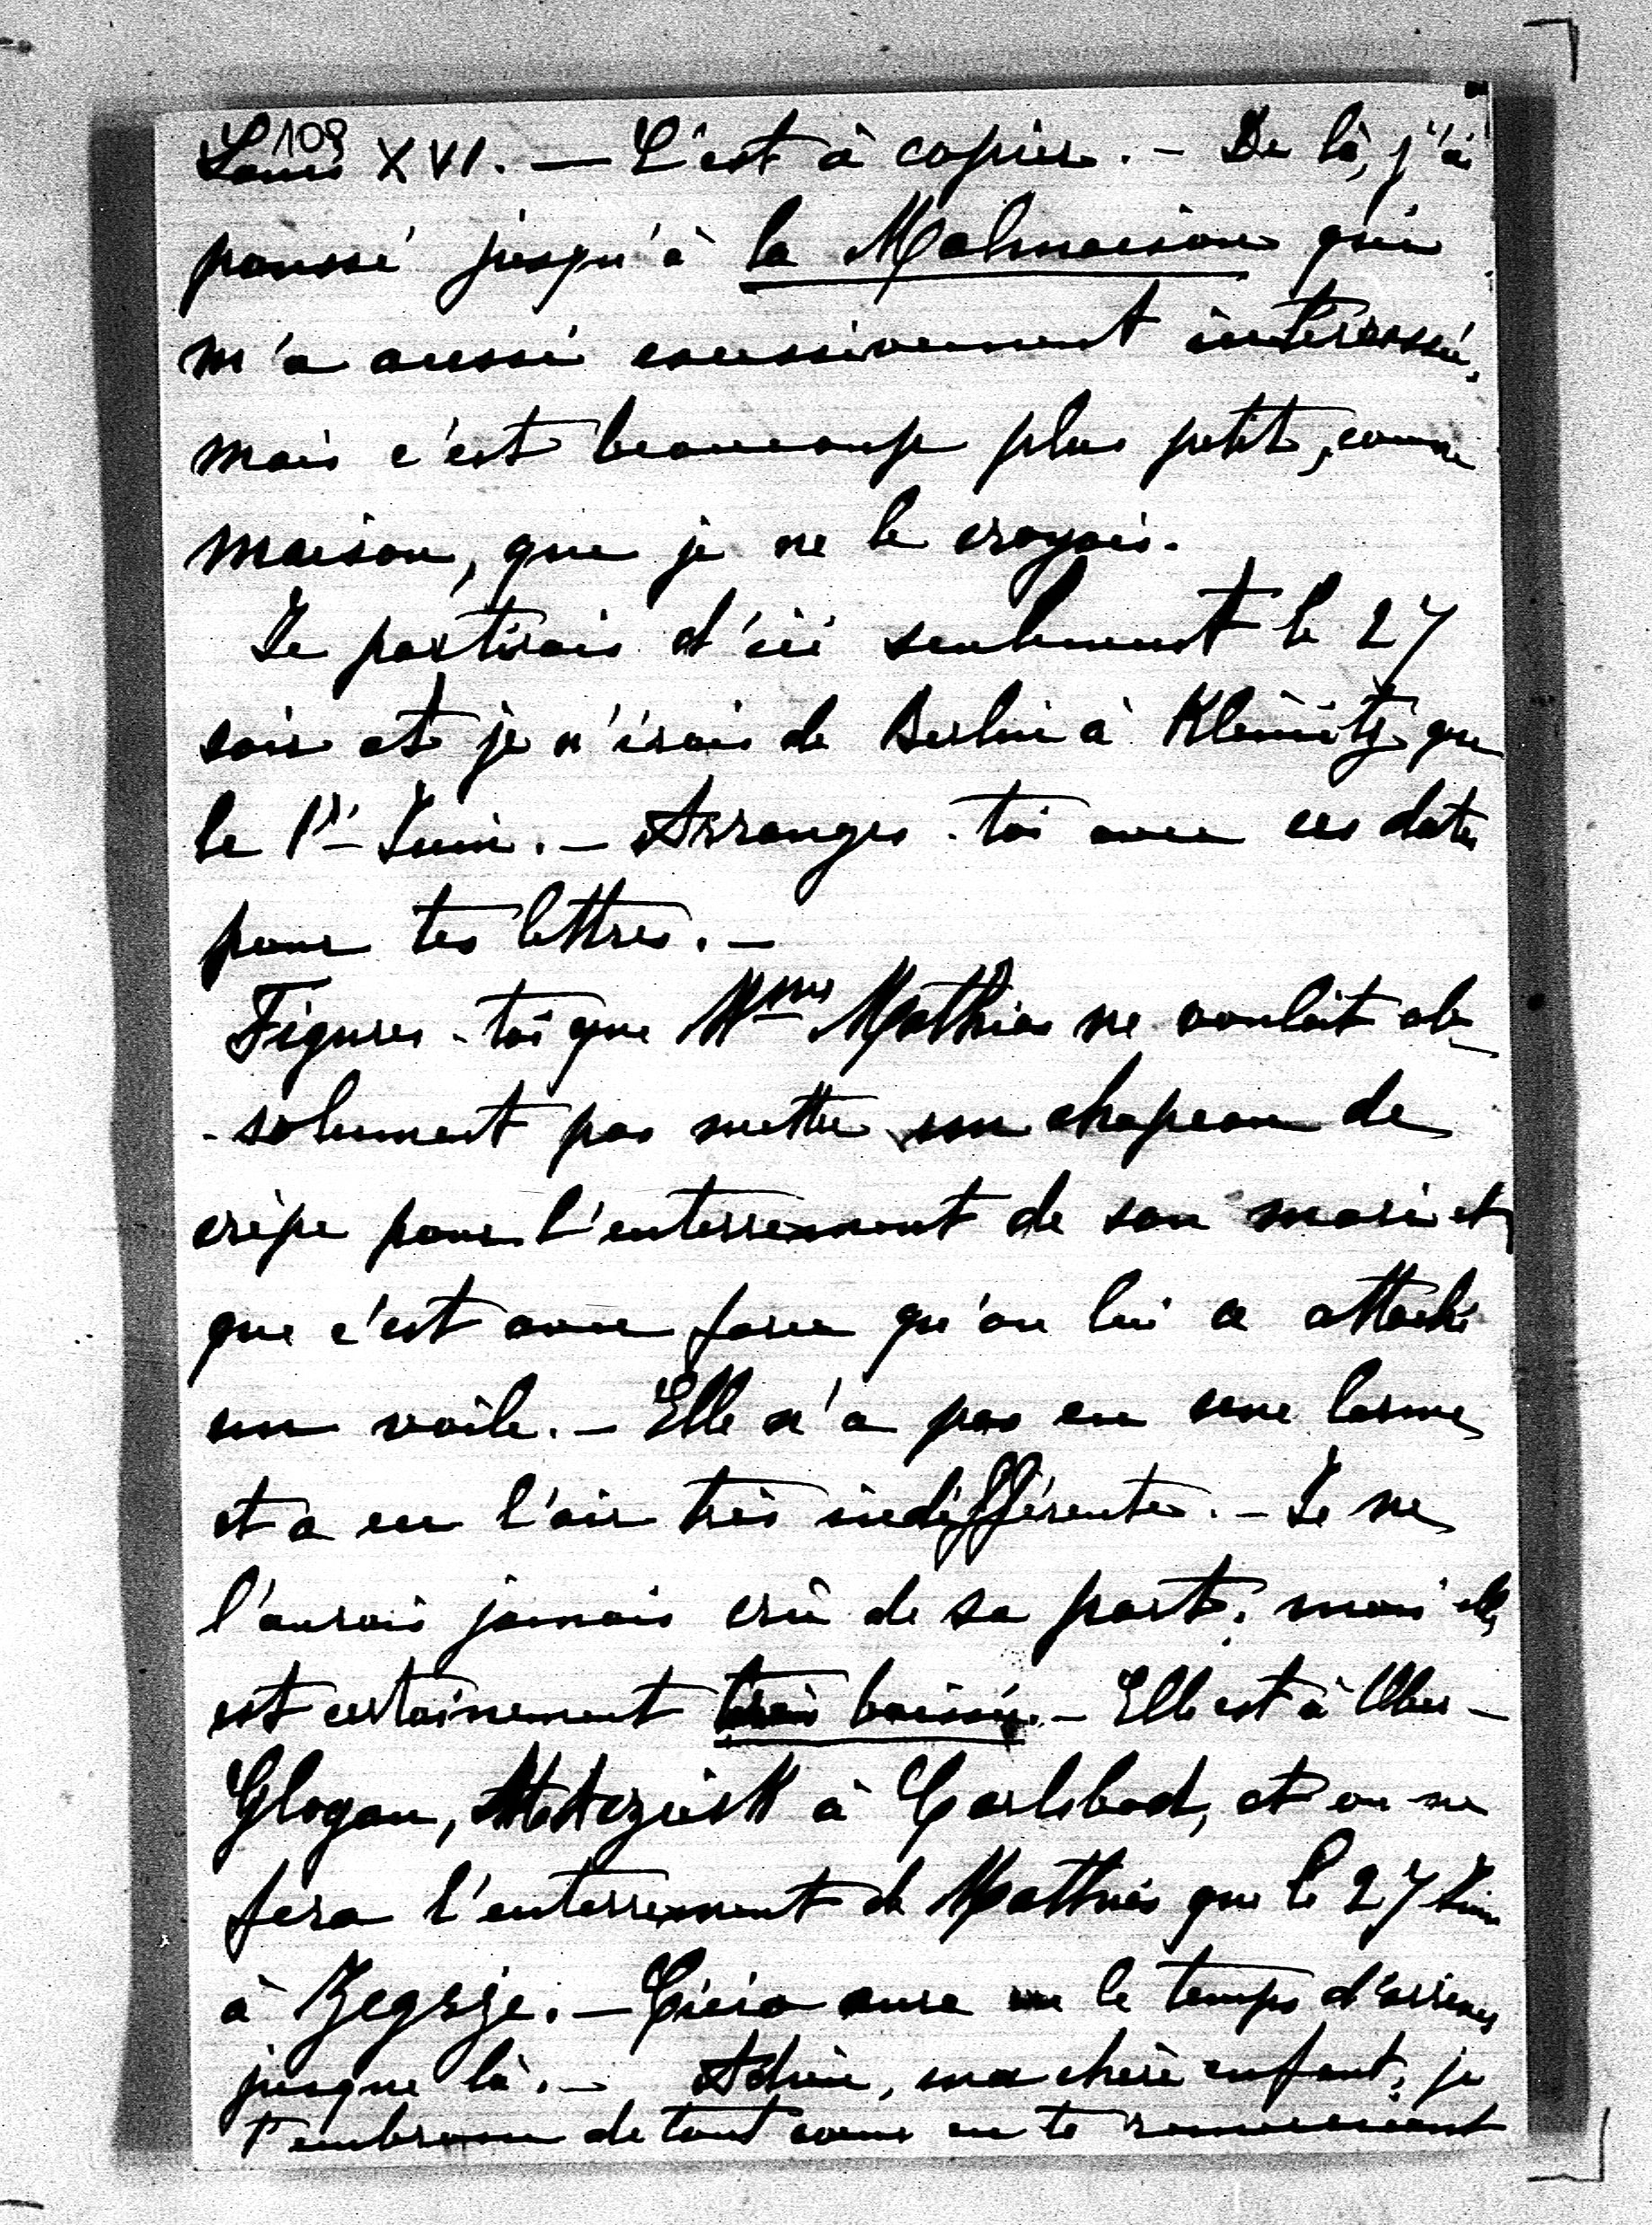 108
Louis XVI. — C'est à copier. — De là, j'ai
poussé jusqu'à la Malmaison qui
m'a aussi excessivement intéressée,
mais c'est beaucoup plus petit, comme
maison, que je ne le croyais.
Je partirais d'ici seulement le 27
soir et je n'irais de Berlin à Klenitz que
le 1r Juin. — Arranges-toi avec ces dates
pour tes lettres. —
Figures-toi que Mme Mathias ne voulait ab-
-solument pas mettre un chapeau de
crêpe pour l'enterrement de son mari et
que c'est avec force qu'on lui a attaché
un voile. — Elle n'a pas eu une larme
et a eu l'air très indifférente. — Je ne
l'aurais jamais crû de sa part; mais elle
est certainement très baissée. — Elle est à Ober-
Glogau, à Carlsbad, et on ne
fera l'enterrement de Mathias que le 27 Juin
à Zegrze. — aura eu le temps d'arriver
jusque là. — Adieu, ma chère enfant; je
t'embrasse de tout coeur en te remerciant